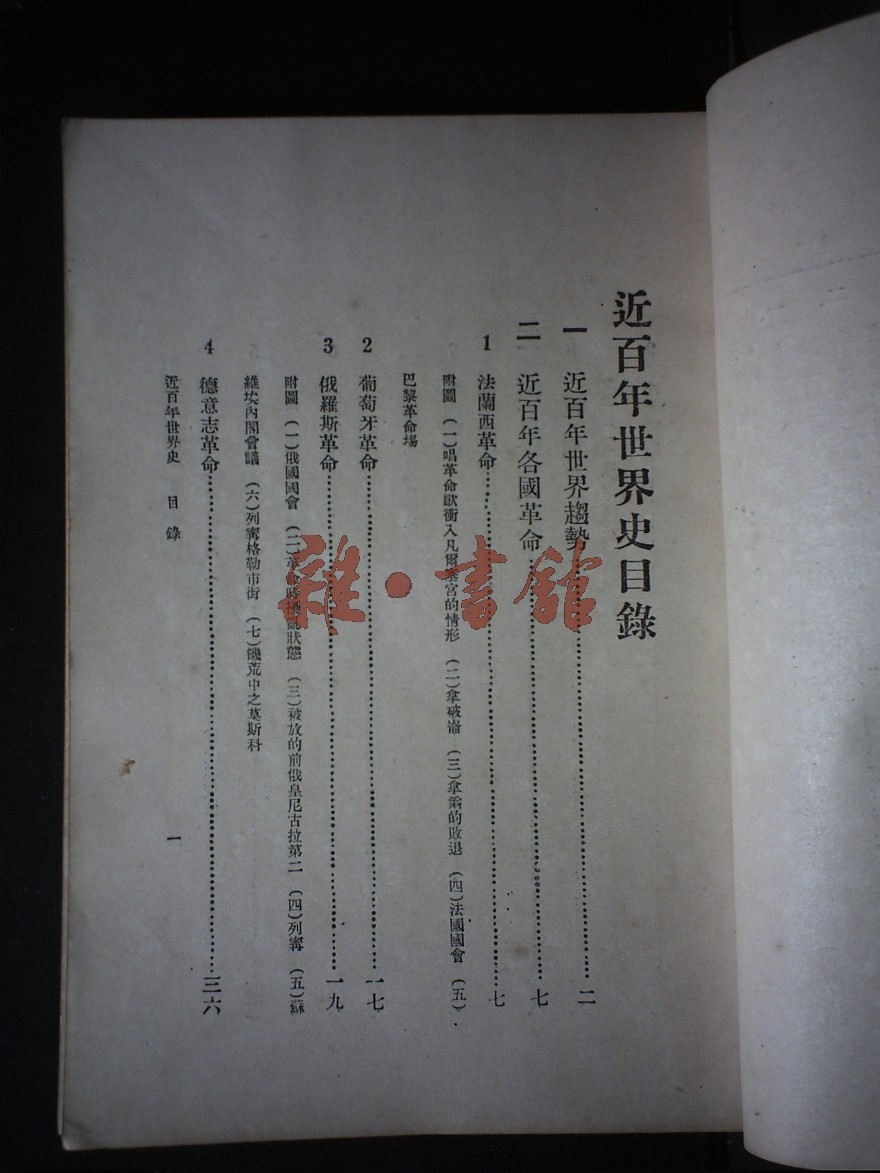 近百年世界史目錄
一 近百年世界趨勢……二
二 近百年各國革命……七
1 法蘭西革命……七
附圖 (一)唱革命歌衝入凡爾塞宮的情形 (二)拿破崙 (三)拿翁的敗退 (四)法國國會 (五)
巴黎革命場
2 葡萄牙革命……一七
3 俄羅斯革命……一九
附圖 (一)俄國國會 (二)革命時擾亂狀態 (三)被放的前俄皇尼古拉第二 (四)列寗 (五)蘇
維埃內閣會議 (六)列寗格勒市街 (七)饑荒中之莫斯科
4 德意志革命……三六
近百年世界史 目錄
一
雜·書館